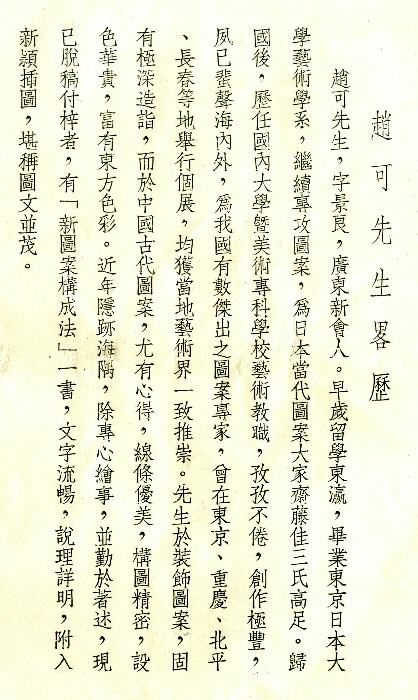 趙可先生畧歷
趙可先生，字景艮，廣東新會人。早歲留學東瀛，畢業東京日本大
學藝術學系，繼續專攻圖案，為日本當代圖案大家齋藤佳三氏高足。歸
國後，歷任國內大學暨美術專科學校藝術教職，孜孜不倦，創作極豐，
夙已蜚聲海內外，為我國有數傑出之圖案專家，曾在東京、重慶、北平
、長春等地舉行個展，均獲當地藝術界一致推崇。先生於裝飾圖案，固
有極深造詣，而於中國古代圖案，尤有心得，線條優美，構圖精密，設
色華貴，富有東方色彩。近年隱跡海隅，除專心繪事，並勤於著述，現
已脫稿付梓者，有「新圖案構成法」一書，文字流暢，說理詳明，附入
新穎插圖，堪稱圖文並茂。